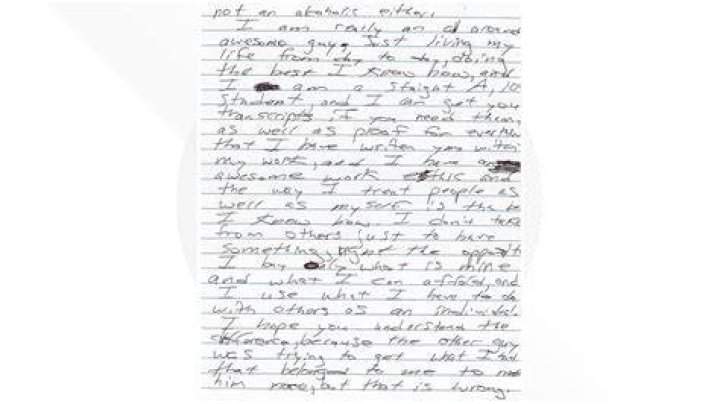 not an alcoholic either.
I am really an all around
awesome guy, Just living my
life from day to day, doing
the best I know how, and
I am a Staight A, 10
Student, and I can get you
transcripts if you need them,
as well as proof for
that I have written you within
my work, and I have an
awesome work this and
the way I treat people as
well as my self is the be
I know how. I don't take
from others just to have
something, the opposit
I buy only what is mine
and what I can afford, and
I use what I have, to do
with others as an individual.
I hope you understand the
difference, because the other guy
was trying to get what I had
that belonged to me to
him, but that is wrong.